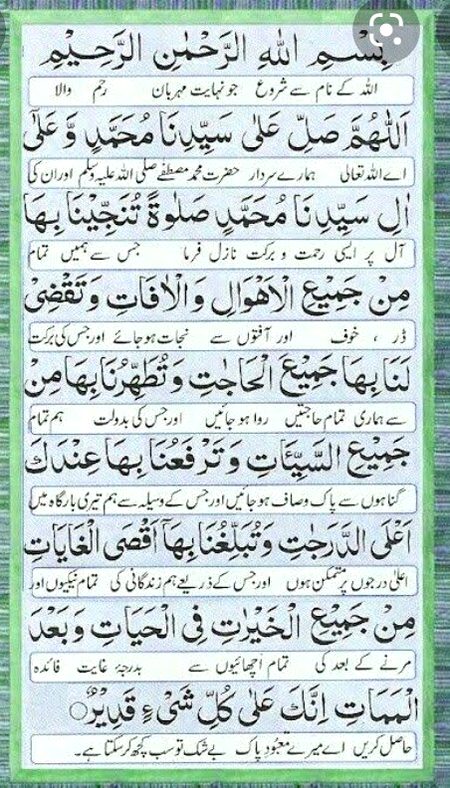 بِسْمِ اللهِ الرَّحْمٰنِ الرَّحِيْمِ
اللہ کے نام سے شروع جو نہایت مہربان رحم والا
اَللّٰهُمَّ صَلِّ عَلٰى سَيِّدِنَا مُحَمَّدٍ وَّعَلٰٓى
اے اللہ تعالی ہمارے سردار حضرت محمد مصطفےٰ صلی اللہ علیہ وسلم اور ان کی
اٰلِ سَيِّدِنَا مُحَمَّدٍ صَلٰوةً تُنَجِّيْنَا بِهَا
آل پر ایسی رحمت و برکت نازل فرما جس سے ہمیں تمام
مِنْ جَمِيْعِ الْاَهْوَالِ وَالْاٰفَاتِ وَتَقْضِىْ
ڈر ، خوف اور آفتوں سے نجات ہو جائے اور جس کی برکت
لَنَا بِهَا جَمِيْعَ الْحَاجٰتِ وَتُطَهِّرُنَا بِهَا مِنْ
سے ہماری تمام حاجتیں روا ہو جائیں اور جس کی بدولت ہم تمام
جَمِيْعِ السَّيِّاٰتِ وَتَرْفَعُنَا بِهَا عِنْدَكَ
گناہوں سے پاک وصاف ہو جائیں اور جس کے وسیلہ سے ہم تیری بارگاہ میں
اَعْلَى الدَّرَجٰتِ وَتُبَلِّغُنَا بِهَآ اَقْصَى الْغَايَاتِ
اعلیٰ درجوں پر متمکن ہوں اور جس کے ذریعے ہم زندگانی کی تمام نیکیوں اور
مِنْ جَمِيْعِ الْخَيْرٰتِ فِى الْحَيَاتِ وَبَعْدَ
مرنے کے بعد کی تمام اچھائیوں سے بدرجۂ غایت فائدہ
الْمَمَاتِ اِنَّكَ عَلٰى كُلِّ شَىْءٍ قَدِيْرٌ
حاصل کریں اے میرے معبود پاک بے شک تو سب کچھ کر سکتا ہے۔